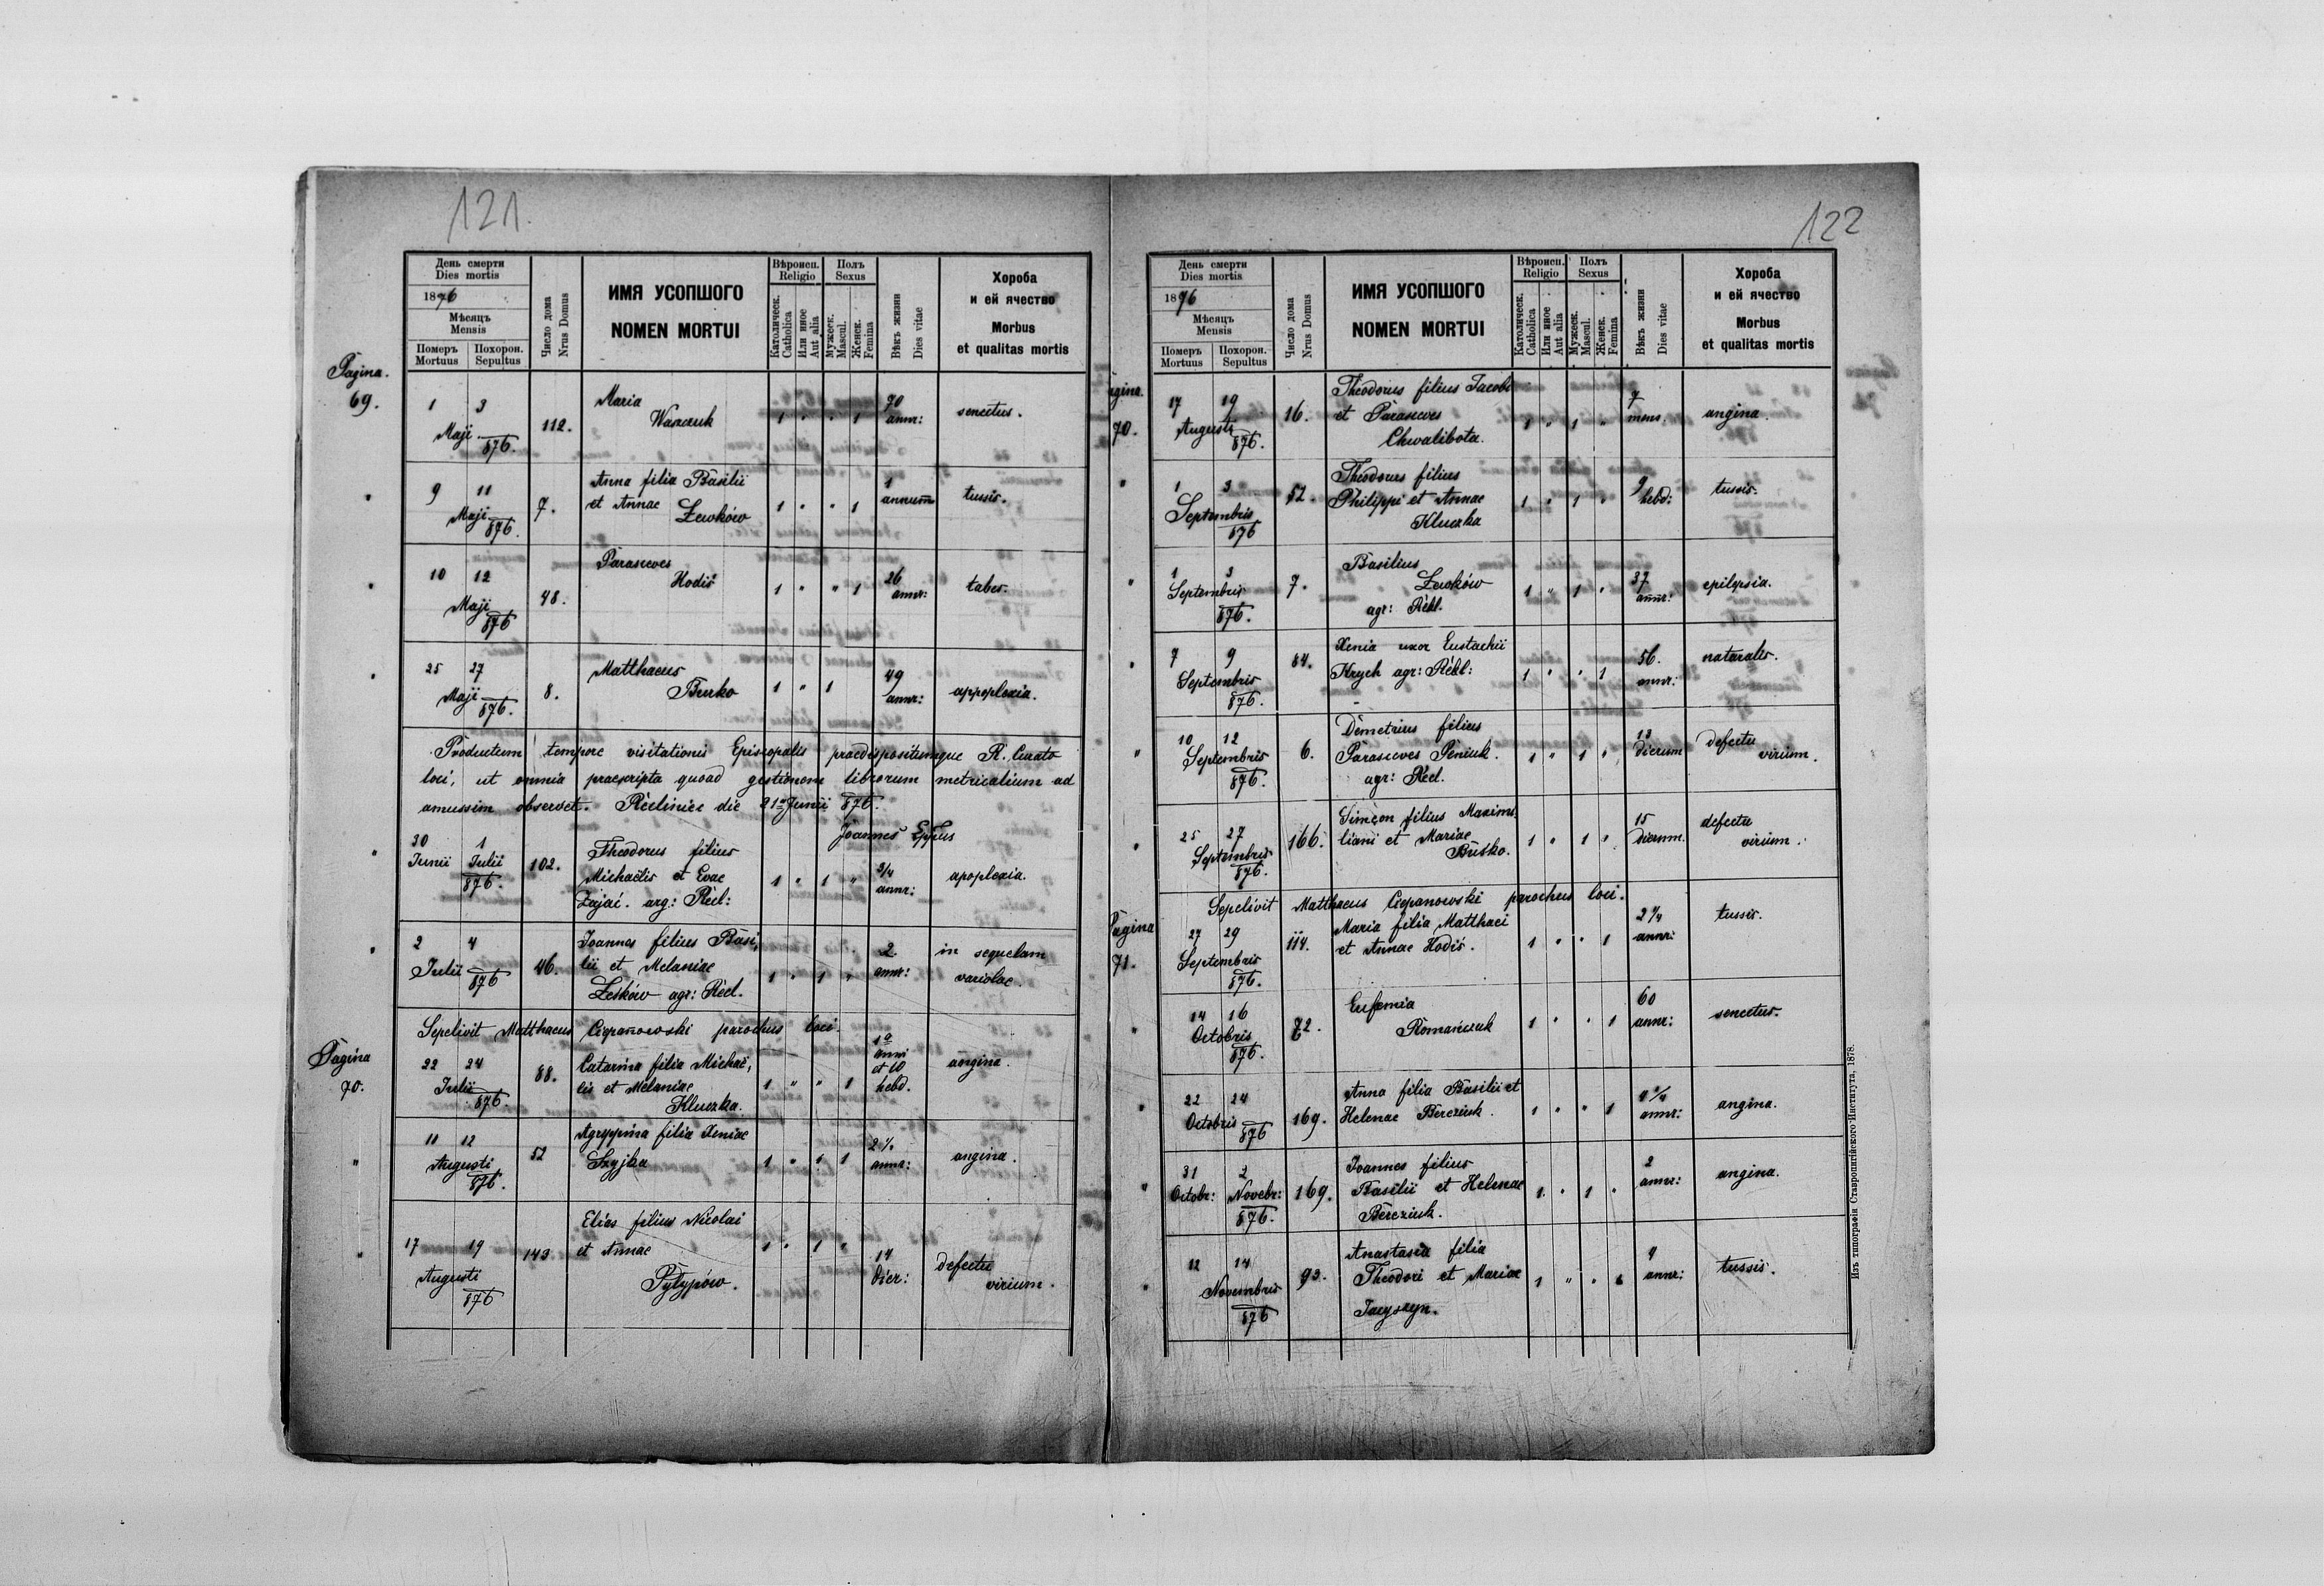 121.
День смерти
Dies mortis
1876
Мѣсяцъ
Mensis
Померъ
Mortuus
Похорон.
Sepultus
Число дома
Nrus Domus
ИМЯ УСОПШОГО
NOMEN MORTUI
Вѣроисп.
Religio
Католическ.
Catholica
Или иное
Aut alia
Полъ
Sexus
Мужеск.
Mascul.
Женск.
Femina
Вѣкъ жизни
Dies vitae
Хороба
и ей ячество
Morbus
et qualitas mortis
Pagina.
69.
1 3
Maji 876.
112.
Maria
Waszczuk
1 " " 1
70
annr:
senectus.
"
9 11
Maji 876.
7.
Anna filia Basilii
et Annae Lewków
1 " " 1
1
annum
tussis.
"
10 12
Maji 876
48.
Parasceves
Hodiś
1 " " 1
26
annr:
tabes.
"
25 27
Maji 876.
8.
Matthaeus
Burko
1 " 1
49
annr:
appoplexia.
Productum tempore visitationis Episcopalis praedispositumque R. Curato
loci, ut omnia praescripta quoad gestionem librorum metricalium ad
amussim observet. Recliniec die 21a Junii 876.
Joannes Eppus
"
30 1
Junii Julii
876.
102.
Theodorus filius
Michaelis et Evae
Zajać. arg: Recl:
1 " 1 "
3/4
annr:
apoplexia.
"
2 4
Julii 876
46.
Joannes filius Basi,
lii et Melaniae
Leśków agr: Recl.
1 " 1 "
2.
annr:
in sequelam
variolae.
Sepelivit Matthaeus Ciepanowski parochus loci.
Pagina
70.
22 24
Julii 876.
88.
Catarina filia Michaë,
lis et Melaniae
Kluczka.
1 " " 1
1a
anni
et 10
hebd.
angina.
"
11 12
Augusti
876.
52
Agryppina filia Xeniae
Szyjka
1 " " 1
2 1/2
annr:
angina.
"
17 19
Augusti
876
143
Elias filius Nicolai
et Annae
Pylypów.
1 " 1 "
14
Dier:
defectu
virium.
122
День смерти
Dies mortis
1876
Мѣсяцъ
Mensis
Померъ
Mortuus
Похорон.
Sepultus
Число дома
Nrus Domus
ИМЯ УСОПШОГО
NOMEN MORTUI
Вѣроисп.
Religio
Католическ.
Catholica
Или иное
Aut alia
Полъ
Sexus
Мужеск.
Mascul.
Женск.
Femina
Вѣкъ жизни
Dies vitae
Хороба
и ей ячество
Morbus
et qualitas mortis
agina.
70.
17 19
Augusti
876.
16.
Theodorus filius Jacobi
et Parasceves
Chwalibota.
1 " 1 "
7
mens:
angina.
"
1 3
Septembris
876
52.
Theodorus filius
Philippi et Annae
Kluczka
1 " 1 "
9
hebd:
tussis.
"
1 3
Septembris
876.
7.
Basilius
Lewków
agr: Rekl.
1 " 1 "
37
annr:
epilepsia.
"
7 9
Septembris
876.
84.
Xenia uxor Eustachii
Krych agr: Rekl:
1 " " 1
56.
annr:
naturalis.
"
10 12
Septembris
876.
6.
Demetrius filius
Parasceves Peniuk.
agr: Recl.
1 " 1 "
13
Dierum
defectu
virium.
"
25 27
Septembris
876.
166.
Simeon filius Maximi,
liani et Mariae
Buśko.
1 " 1 "
15
Dierum.
defectu
virium.
Sepelivit Matthaeus Ciepanowski parochus loci.
Pagina
71.
27 29
Septembris
876.
114.
Maria filia Matthaei
et Annae Hodiś.
1 " " 1
2 1/4
annr:
tussis.
"
14 16
Octobris
876.
72.
Eufemia
Romańczuk
1 " " 1
60
annr:
senectus.
"
22 24
Octobris
876
169.
Anna filia Basilii et
Helenae Bereziuk.
1 " " 1
annr:
angina.
"
31 2
Octobr: Novebr:
876.
169.
Joannes filius
Basilii et Helenae
Bereziuk.
1 " 1 "
2
annr:
angina.
"
12 14
Novembris
876
93.
Anastasia filia
Theodori et Mariae
Jacyszyn.
1 " "
4
annr:
tussis.
Изъ типографіи Ставропигійского Института, 1878.